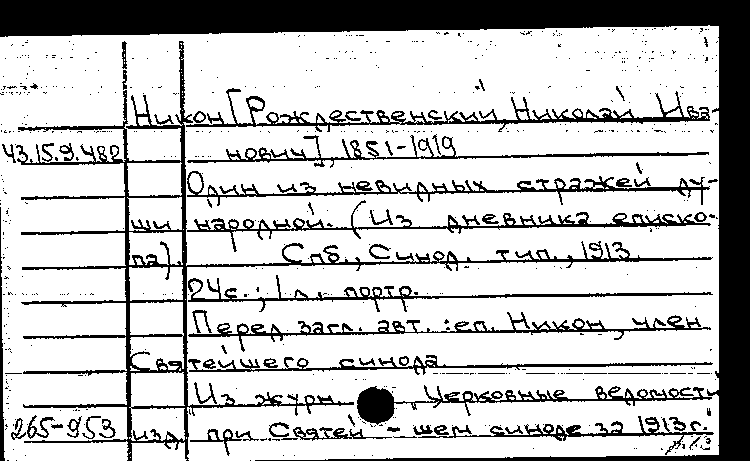 Никон [Рождественский, Николай Ива-
43.15.9.482 нович], 1851-1919
Один из невидных стражей ду-
ши народной. (Из дневника еписко-
па). Спб., Синод. тип., 1913
24с.; 1 л. портр.
Перед загл. авт.: еп. Никон, член
Святейшего синода
"Из журн. "Церковные ведомости
265-953 изд. при Святей - шем синоде за 1913г."